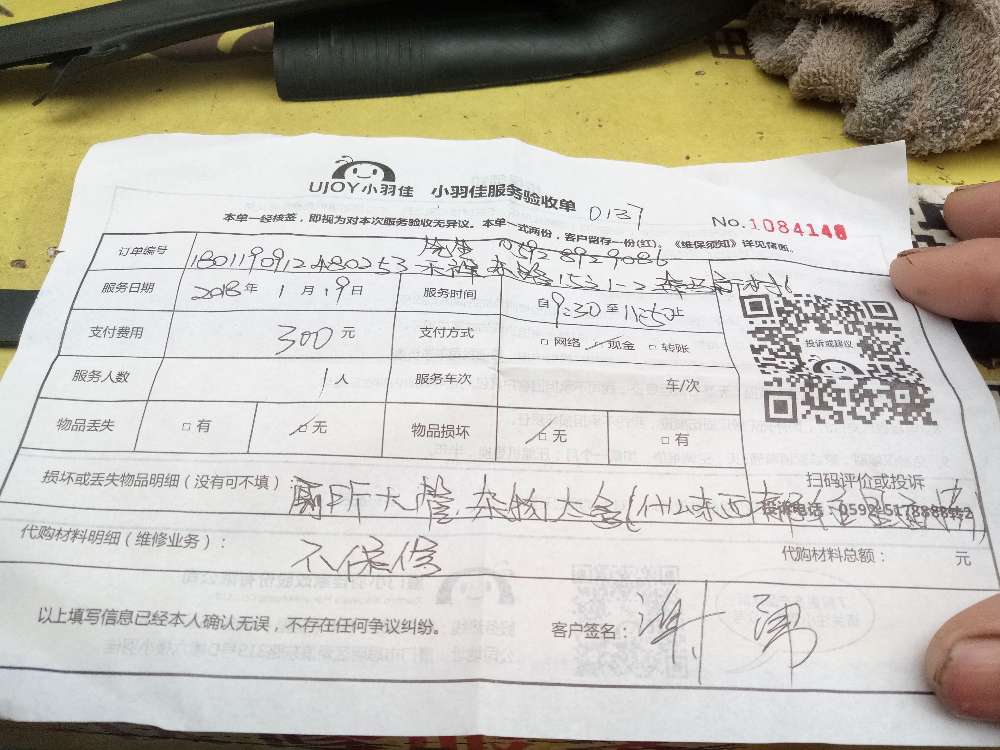 UJOY小羽佳 小羽佳服务验收单 0137
No.1084148
本单一经核签，即视为对本次服务验收无异议。本单一式两份，客户留存一份(红)。《维保须知》详见背面。
订单编号 1801190912480253
服务日期 2018年1月19日 服务时间 自9:30至 止
支付费用 300元 支付方式 □网络 □现金 □转账
投诉或建议
服务人数 1人 服务车次 车/次
物品丢失 □有 □无 物品损坏 □无 □有
扫码评价或投诉
损坏或丢失物品明细（没有可不填）： 厕所大管
投诉电话：0592-5178888转2
代购材料明细（维修业务）： 不保修 代购材料总额： 元
以上填写信息已经本人确认无误，不存在任何争议纠纷。 客户签名：